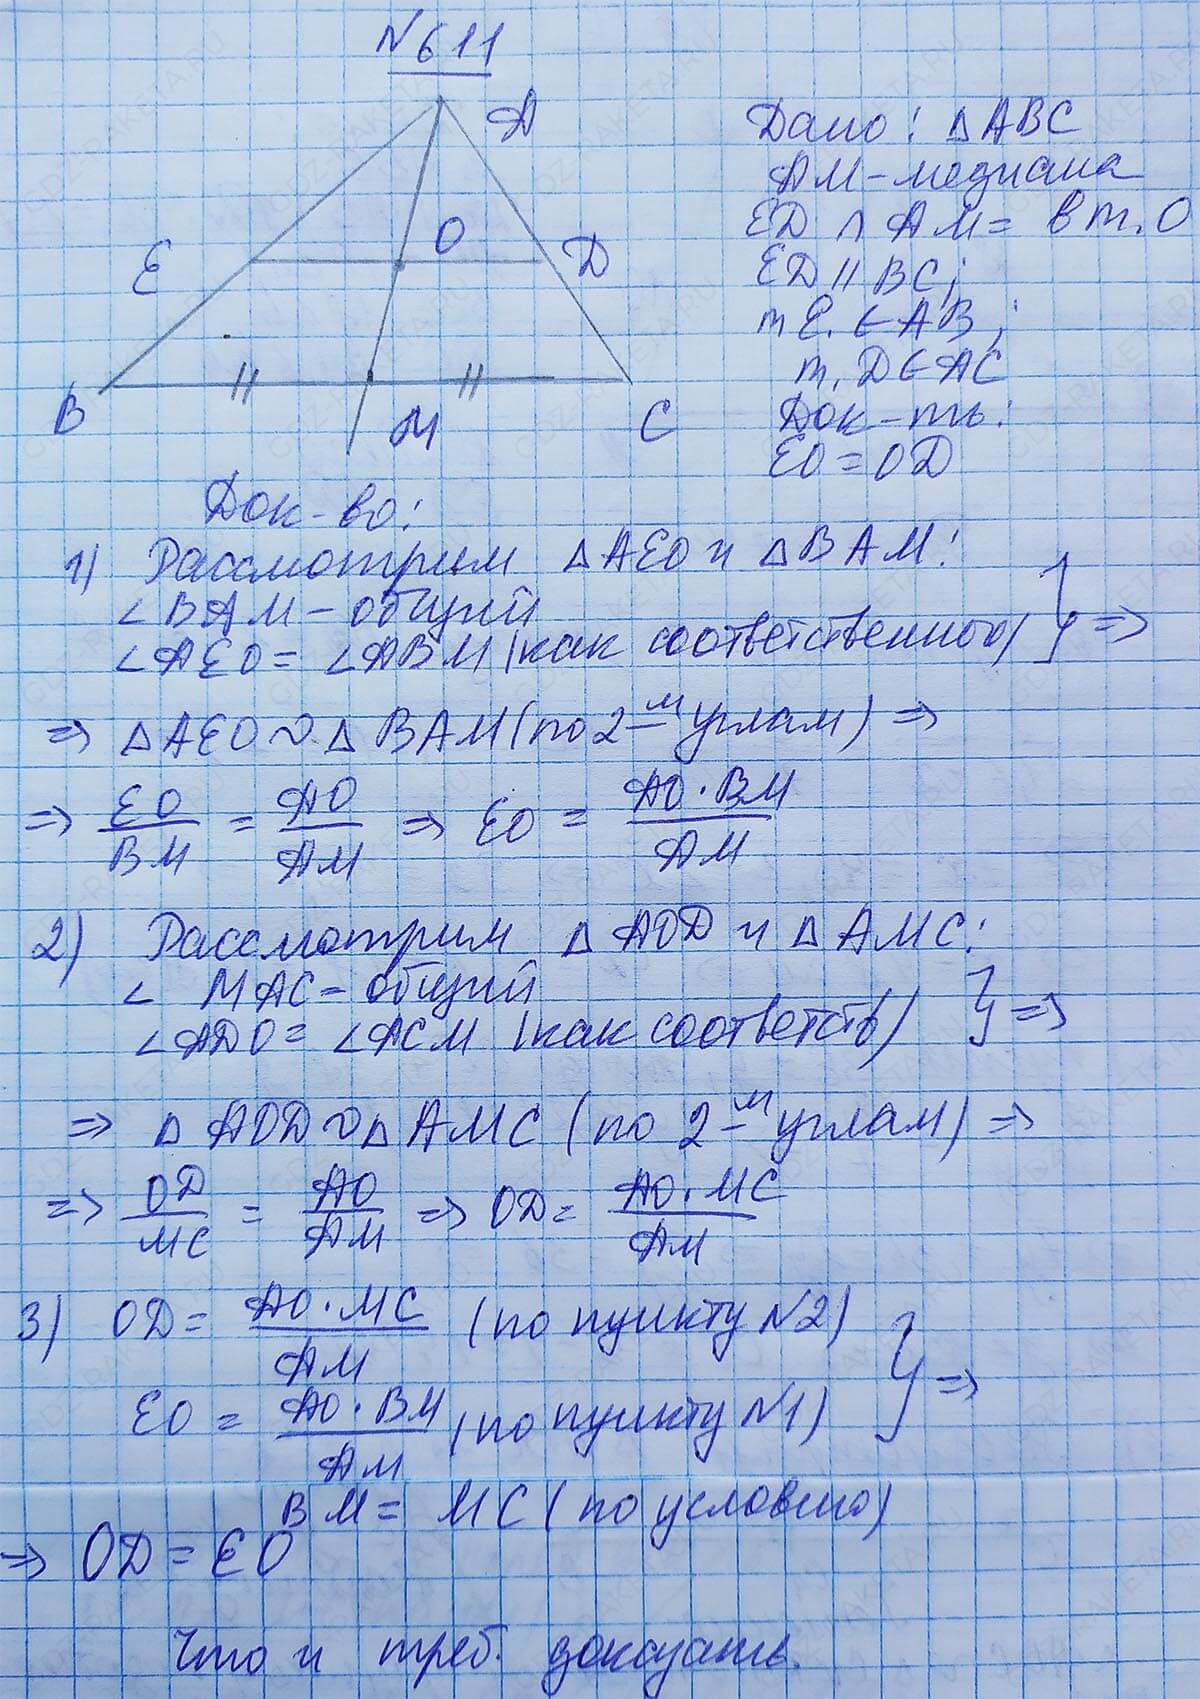 N611
A
O
E
D
B
M
C
Дано: △ABC
AM-медиана
ED ∩ AM = в т. O
ED || BC;
т E. ∈ AB;
т. D ∈ AC
Док-ть:
EO = OD
Док-во:
1) Рассмотрим △AEO и △BAM:
∠BAM - общий
∠AEO = ∠ABM (как соответственного) } =>
=> △AEO ∾ △BAM (по 2-м углам) =>
=> EO/BM = AO/AM => EO = AO·BM/AM
2) Рассмотрим △AOD и △AMC:
∠ MAC - общий
∠ADO = ∠ACM (как соответств) } =>
=> △AOD ∾ △AMC (по 2-м углам) =>
=> OD/MC = AO/AM => OD = AO·MC/AM
3) OD = AO·MC/AM (по пункту N2)
EO = AO·BM/AM (по пункту N1) } =>
BM = MC (по условию)
=> OD = EO
Что и треб. доказать.